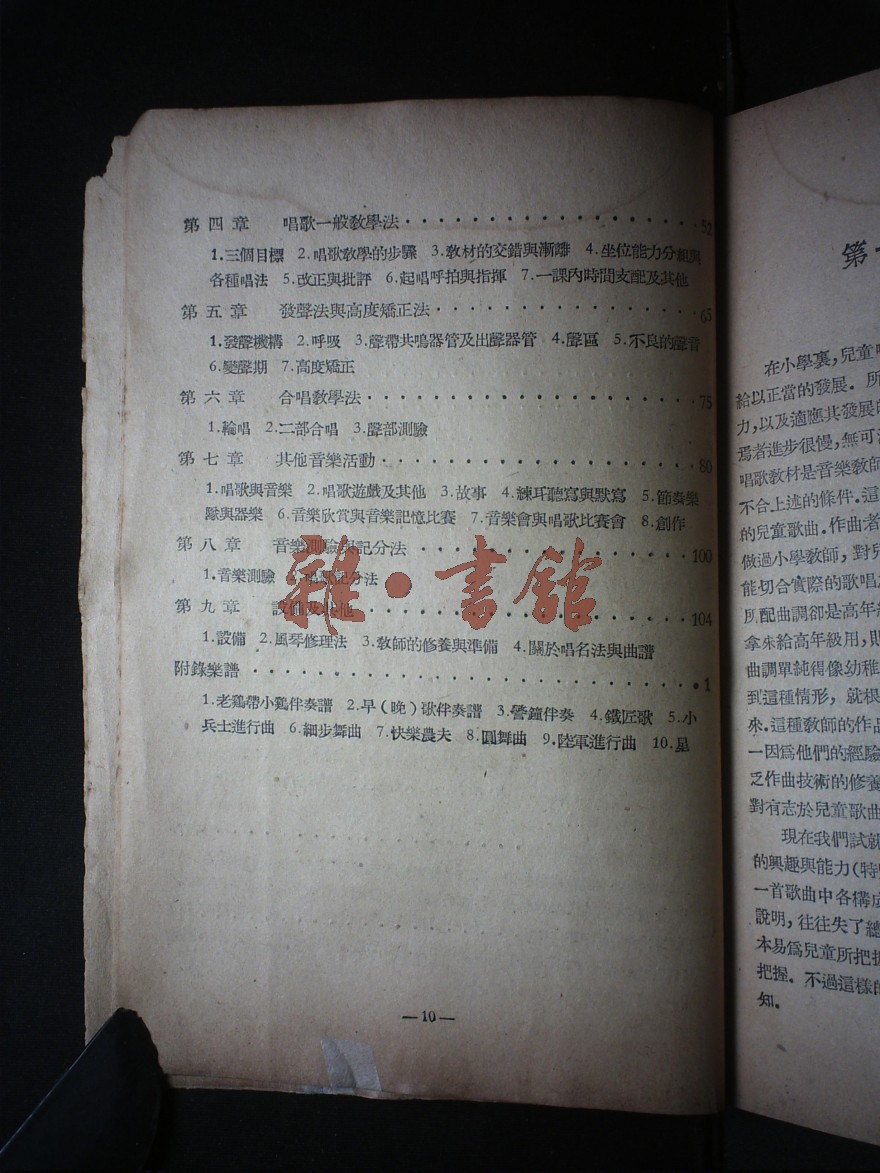 第四章 唱歌一般敎學法····················52
1.三個目標 2.唱歌敎學的步驟 3.敎材的交錯與漸離 4.坐位能力分組與
各種唱法 5.改正與批評 6.起唱呼拍與指揮 7.一課內時間支配及其他
第五章 發聲法與高度矯正法··················65
1.發聲機構 2.呼吸 3.聲帶共鳴器管及出聲器管 4.聲區 5.不良的聲音
6.變聲期 7.高度矯正
第六章 合唱敎學法······················75
1.輪唱 2.二部合唱 3.聲部測驗
第七章 其他音樂活動·····················80
1.唱歌與音樂 2.唱歌遊戲及其他 3.故事 4.練耳聽寫與默寫 5.節奏樂
隊與器樂 6.音樂欣賞與音樂記憶比賽 7.音樂會與唱歌比賽會 8.創作
第八章 音樂測驗與記分法···················100
1.音樂測驗 記分法
第九章 設備及其他······················104
1.設備 2.風琴修理法 3.敎師的修養與準備 4.關於唱名法與曲譜
附錄樂譜····························1
1.老鷄帶小鷄伴奏譜 2.早(晚)歌伴奏譜 3.警鐘伴奏 4.鐵匠歌 5.小
兵士進行曲 6.細步舞曲 7.快樂農夫 8.圓舞曲 9.陸軍進行曲 10.星
—10—
雜·書館
第
在小學裏,兒童
給以正當的發展.所
力,以及適應其發展的
焉者進步很慢,無可
唱歌敎材是音樂敎師
不合上述的條件.這
的兒童歌曲.作曲者
做過小學敎師,對兒
能切合實際的歌唱
所配曲調卻是高年
拿來給高年級用,則
曲調單純得像幼稚
到這種情形,就根
來.這種敎師的作品
一因爲他們的經驗
乏作曲技術的修養
對有志於兒童歌曲
現在我們試就
的興趣與能力(特
一首歌曲中各構成
說明,往往失了總
本易爲兒童所把握
把握.不過這樣的
知.